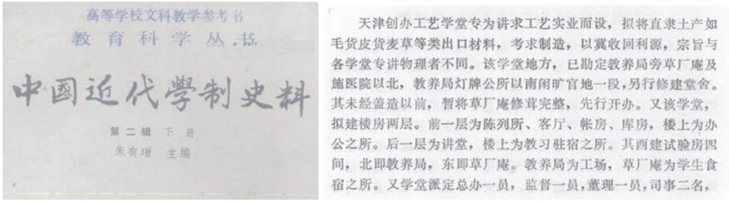 高等学校文科教学参考书
教育科学丛书.15.
中國近代學制史料
第二辑 下册
朱有瓛 主编
天津创办工艺学堂专为讲求工艺实业而设，拟将直隶土产如
毛货皮货麦草等类出口材料，考求制造，以冀收回利源，宗旨与
各学堂专讲物理者不同。该学堂地方，已勘定教养局旁草厂庵及
施医院以北，教养局灯牌公所以南闲旷官地一段，另行修建堂舍。
其未经盖造以前，暂将草厂庵修茸完整，先行开办。又该学堂，
拟建楼房两层。前一层为陈列所、客厅、帐房、库房，楼上为办
公之所。后一层为讲堂，楼上为教习驻宿之所。其西建试验房四
间，北即教养局，东即草厂庵。教养局为工场，草厂庵为学生食
宿之所。又学堂派定总办一员，监督一员，董理一员，司事二名，